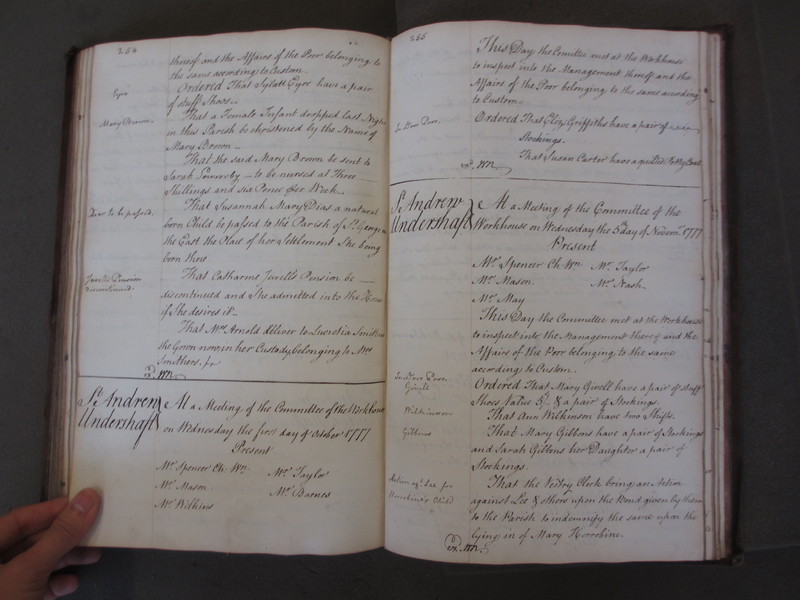 254
thereof and the Affairs of the Poor belonging to
the same according to Custom
Eyre
Ordered That Eyre have a pair
of stuff Shoes
Mary Brown
That a Female Infant dropped last Night
in this Parish be christened by the Name of
Mary Brown
That the said Mary Brown be sent to
Sarah to be nursed at Three
Shillings and six Pence per Week
Dias to be passed.
That Susannah Mary Dias a natural
born Child be passed to the Parish of St. George in
the East the Place of her Settlement She being
born there
Pension
discontinued.
That Catharine Pension be
discontinued and She admitted into the House
if She desires it
That Mrs. Arnold deliver to Lucretia
the Gown now in her Custody belonging to Mrs
Smithers.
St. Andrew
Undershaft
At a Meeting of the Committee of the Workhouse
on Wednesday the first day of October 1777
Present
Mr. Spencer Ch: Wn. Mr. Taylor
Mr. Mason. Mr. Barnes
Mr. Wilkins
255
This Day the Comittee met at the Workhouse
to inspect into the Management thereof and the
Affairs of the Poor belonging to the same according
to Custom
In Door Poor.
Ordered That Griffiths have a pair of
Stockings.
That Susan Carter have a quilted Petty Coat
St. Andrew
Undershaft
At a Meeting of the Committee of the
Workhouse on Wednesday the 5 day of Novemr. 1777
Present
Mr. Spencer Ch: Wn. Mr. Taylor
Mr. Mason. Mr. Nash.
Mr. May
This Day the Committee met at the Workhouse
to inspect into the Management thereof and the
Affairs of the Poor belonging to the same
according to Custom.
In Door Poor.
Givell
Ordered That Mary Givell have a pair of stuff
Shoes Value & a pair of Stockings.
Wilkinson
That Ann Wilkinson have two Shifts.
Gibbons
That Mary Gibbons have a pair of Stockings
and Sarah Gibbons her Daughter a pair of
Stockings.
Action agt. Lee for
Child
That the Vestry Clerk bring an Action
against Lee & others upon the Bond given by them
to the Parish to indemnify the same upon the
lying in of Mary Horrobine.